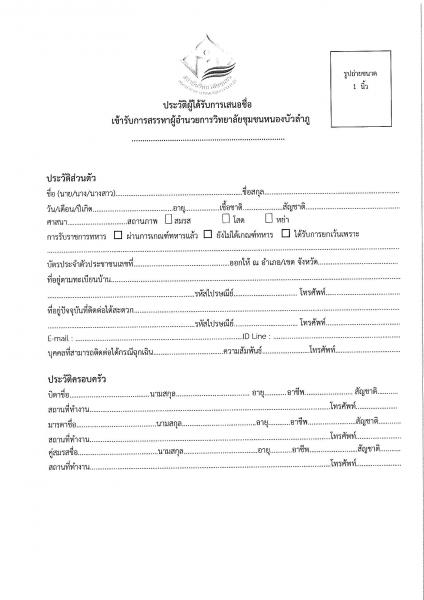 รูปถ่ายขนาด
1 นิ้ว
ประวัติผู้ได้รับการเสนอชื่อ
เข้ารับการสรรหาผู้อำนวยการวิทยาลัยชุมชนหนองบัวลำภู
..............................................................
ประวัติส่วนตัว
ชื่อ (นาย/นาง/นางสาว)..................................................ชื่อสกุล..................................................
วัน/เดือน/ปีเกิด..............................อายุ....................เชื้อชาติ....................สัญชาติ....................
ศาสนา....................สถานภาพ ☐ สมรส ☐ โสด ☐ หย่า
การรับราชการทหาร ☐ ผ่านการเกณฑ์ทหารแล้ว ☐ ยังไม่ได้เกณฑ์ทหาร ☐ ได้รับการยกเว้นเพราะ
....................................................................................................
บัตรประจำตัวประชาชนเลขที่..............................ออกให้ ณ อำเภอ/เขต จังหวัด..............................
ที่อยู่ตามทะเบียนบ้าน....................................................................................................
..................................................รหัสไปรษณีย์.................... โทรศัพท์....................
ที่อยู่ปัจจุบันที่ติดต่อได้สะดวก..................................................................................
..................................................รหัสไปรษณีย์.................... โทรศัพท์....................
E-mail : ..................................................ID Line : ..............................
บุคคลที่สามารถติดต่อได้กรณีฉุกเฉิน....................ความสัมพันธ์....................โทรศัพท์....................
ประวัติครอบครัว
บิดาชื่อ....................นามสกุล.................... อายุ..........อาชีพ.................... สัญชาติ..........
สถานที่ทำงาน..................................................โทรศัพท์....................
มารดาชื่อ....................นามสกุล....................อายุ..........อาชีพ....................สัญชาติ..........
สถานที่ทำงาน..................................................โทรศัพท์....................
คู่สมรสชื่อ....................นามสกุล....................อายุ..........อาชีพ....................สัญชาติ..........
สถานที่ทำงาน..................................................โทรศัพท์....................